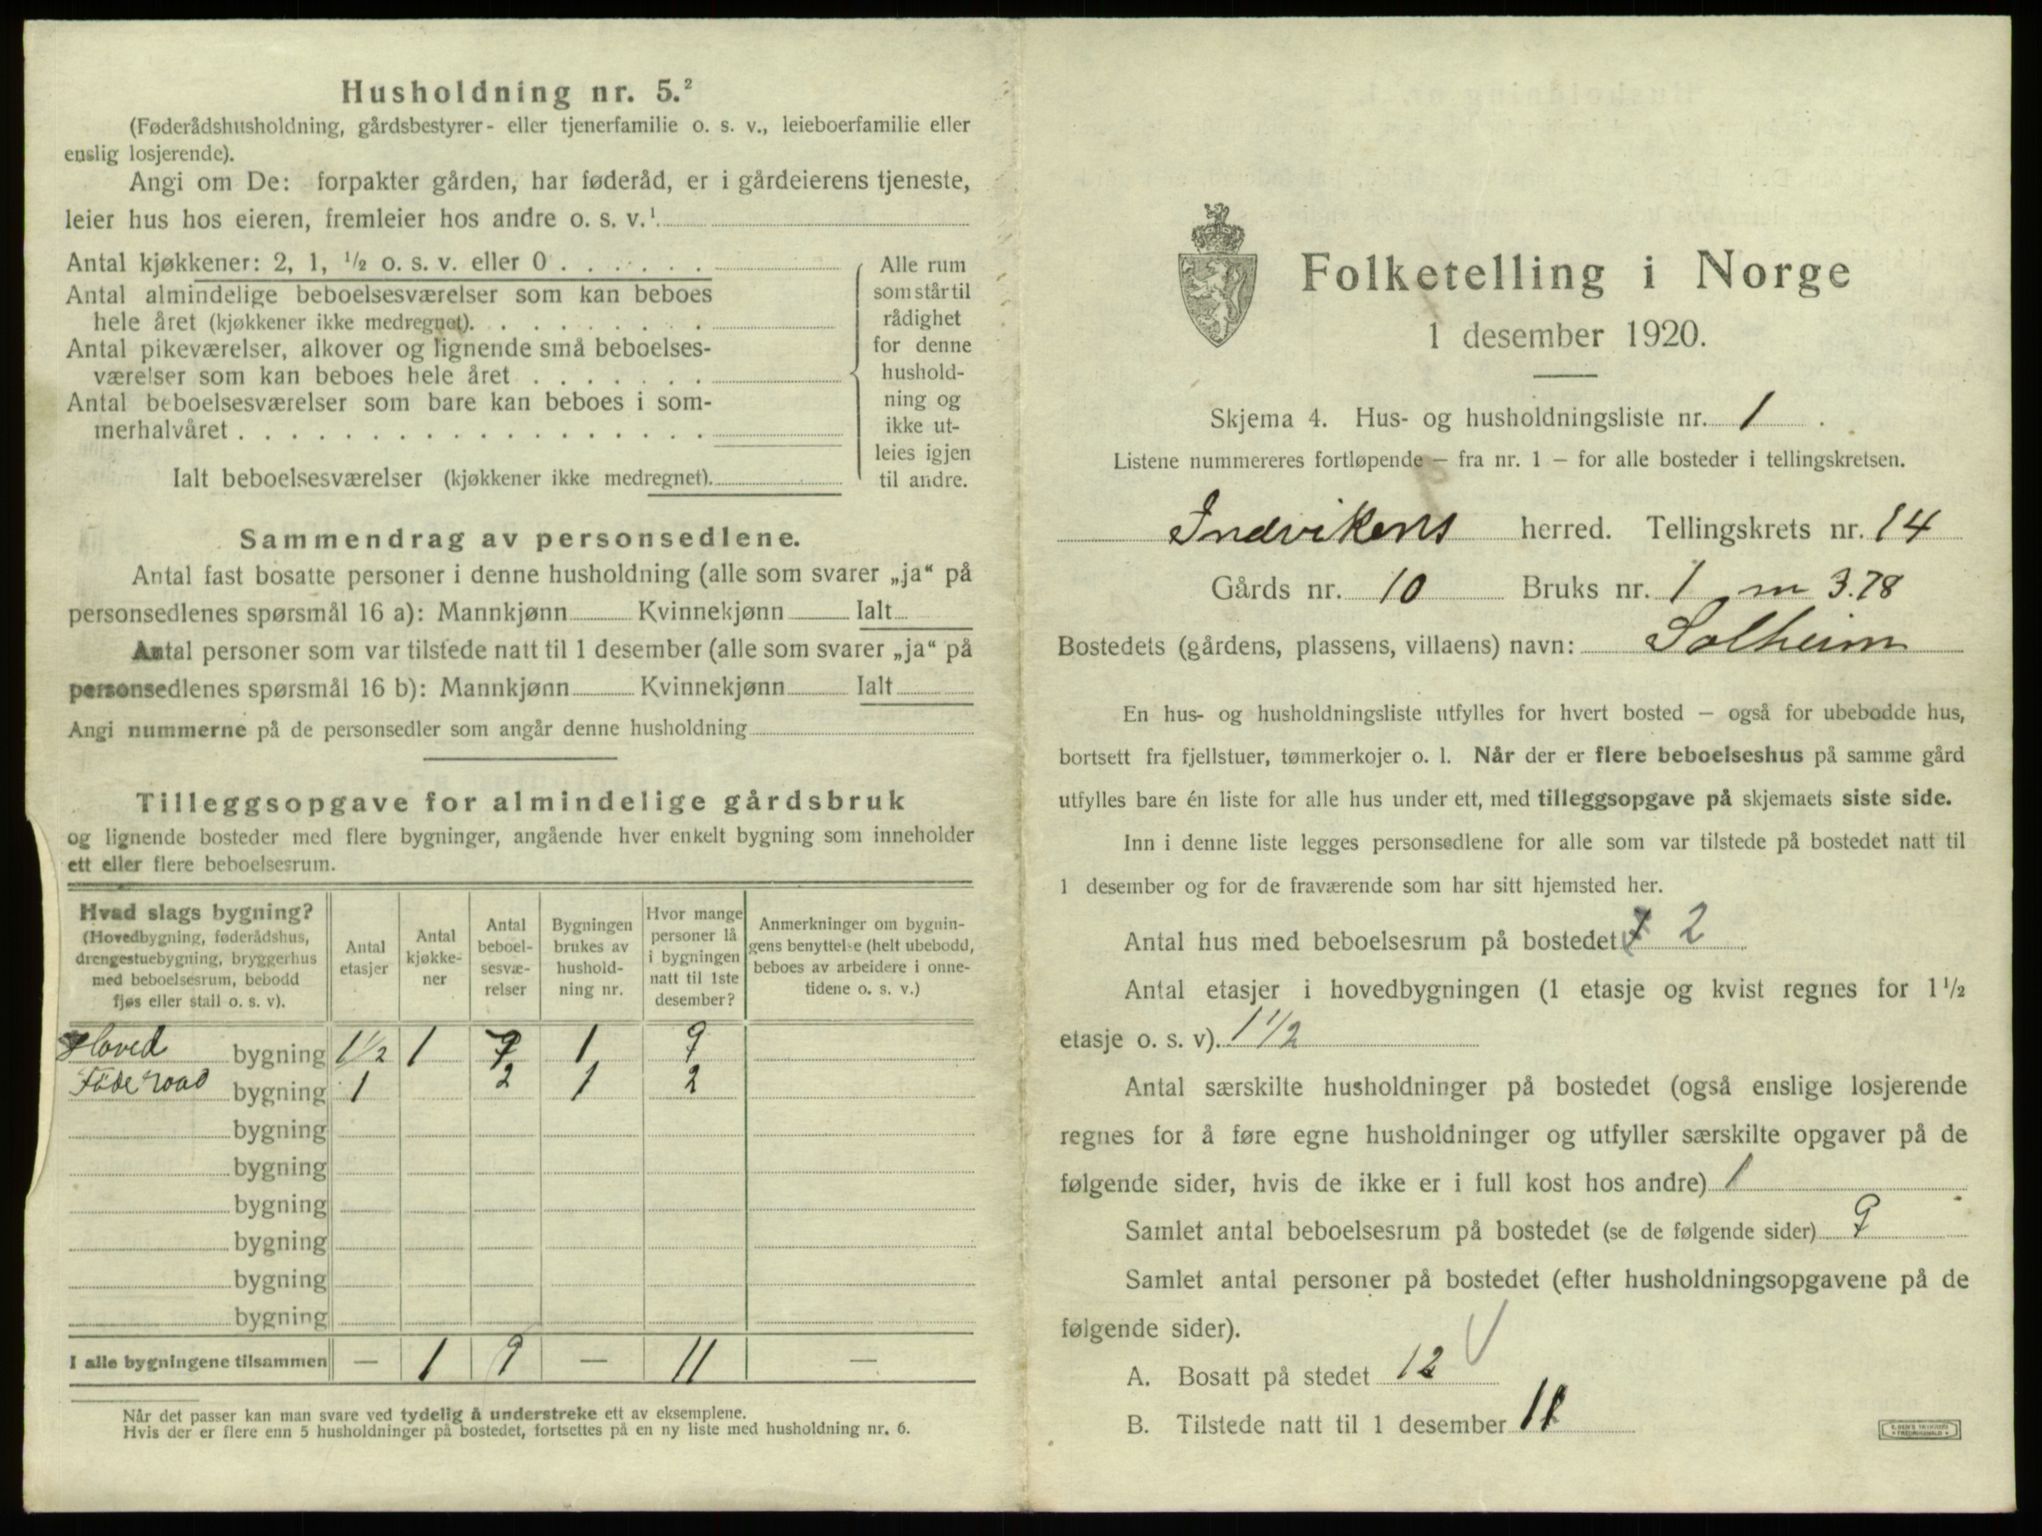 Husholdning nr. 5.²
(Føderådshusholdning, gårdsbestyrer- eller tjenerfamilie o. s. v., leieboerfamilie eller
enslig losjerende).
Angi om De: forpakter gården, har føderåd, er i gårdeierens tjeneste,
leier hus hos eieren, fremleier hos andre o. s. v.¹
Antal kjøkkener: 2, 1, ½ o. s. v. eller 0 . . . . . .
Antal almindelige beboelsesværelser som kan beboes
hele året (kjøkkener ikke medregnet). . . . . . . . .
Antal pikeværelser, alkover og lignende små beboelses-
værelser som kan beboes hele året . . . . . . .
Antal beboelsesværelser som bare kan beboes i som-
merhalvåret . . . . . . . . . . . . . . . . . .
Ialt beboelsesværelser (kjøkkener ikke medregnet).
Alle rum
som står til
rådighet
for denne
hushold-
ning og
ikke ut-
leies igjen
til andre.
Sammendrag av personsedlene.
Antal fast bosatte personer i denne husholdning (alle som svarer „ja“ på
personsedlenes spørsmål 16 a): Mannkjønn Kvinnekjønn Ialt
Antal personer som var tilstede natt til 1 desember (alle som svarer „ja“ på
personsedlenes spørsmål 16 b): Mannkjønn Kvinnekjønn Ialt
Angi nummerne på de personsedler som angår denne husholdning
Tilleggsopgave for almindelige gårdsbruk
og lignende bosteder med flere bygninger, angående hver enkelt bygning som inneholder
ett eller flere beboelsesrum.
Hvad slags bygning?
(Hovedbygning, føderådshus,
drengestuebygning, bryggerhus
med beboelsesrum, bebodd
fjøs eller stall o. s. v).
Antal
etasjer
Antal
kjøkke-
ner
Antal
beboel-
sesvæ-
relser
Bygningen
brukes av
hushold-
ning nr.
Hvor mange
personer lå
i bygningen
natt til 1ste
desember?
Anmerkninger om bygnin-
gens benyttelse (helt ubebodd,
beboes av arbeidere i onne-
tidene o. s. v.)
Hoved bygning 1½ 1 7 1 9
Föderaad bygning 1 2 1 2
bygning
bygning
bygning
bygning
bygning
bygning
I alle bygningene tilsammen — 1 9 — 11 —
Når det passer kan man svare ved tydelig å understreke ett av eksemplene.
Hvis der er flere enn 5 husholdninger på bostedet, fortsettes på en ny liste med husholdning nr. 6.
Folketelling i Norge
1 desember 1920.
Skjema 4. Hus- og husholdningsliste nr. 1.
Listene nummereres fortløpende – fra nr. 1 – for alle bosteder i tellingskretsen.
Indvikens herred. Tellingskrets nr. 14
Gårds nr. 10 Bruks nr. 1 m 3.78
Bostedets (gårdens, plassens, villaens) navn: Solheim
En hus- og husholdningsliste utfylles for hvert bosted – også for ubebodde hus,
bortsett fra fjellstuer, tømmerkojer o. l. Når der er flere beboelseshus på samme gård
utfylles bare én liste for alle hus under ett, med tilleggsopgave på skjemaets siste side.
Inn i denne liste legges personsedlene for alle som var tilstede på bostedet natt til
1 desember og for de fraværende som har sitt hjemsted her.
Antal hus med beboelsesrum på bostedet 2
Antal etasjer i hovedbygningen (1 etasje og kvist regnes for 1½
etasje o. s. v). 1½
Antal særskilte husholdninger på bostedet (også enslige losjerende
regnes for å føre egne husholdninger og utfyller særskilte opgaver på de
følgende sider, hvis de ikke er i full kost hos andre) 1
Samlet antal beboelsesrum på bostedet (se de følgende sider) 9
Samlet antal personer på bostedet (efter husholdningsopgavene på de
følgende sider).
A. Bosatt på stedet 12
B. Tilstede natt til 1 desember 11